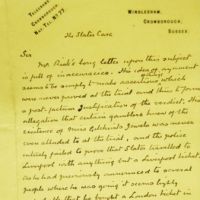 TELEGRAMS
CROWBOROUGH.
NAT. TEL. Nº 77.
WINDLESHAM,
CROWBOROUGH,
SUSSEX
The Slater Case
Sir
Mr. Rick's long letter upon this subject
is full of inaccuracies. His idea of argument
seems to be simply to make assertions which
were never proved at the trial and then to found
a post factum justification of the verdict. His
allegation that certain gamblers knew of the
existence of Miss Gilchrist's Jewels was never
even alluded to at the trial, and the police
entirely failed to prove that Slater travelled to
Liverpool with anything but a Liverpool ticket,
as he had previously announced to several
people where he was going it seems highly
that he bought a London ticket in